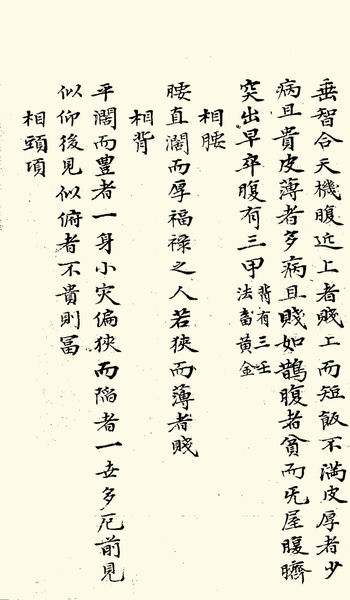 垂智合天機腹近上者賤工而短飯不滿皮厚者少
病且貴皮薄者多病且賤如鵲腹者貧而旡屋腹臍
突出早卒腹有三甲背有三壬法畜黃金
相腰
腰直濶而厚福祿之人若狹而薄者賤
相背
平濶而豊者一身小灾偏狹而陷者一世多厄前見
似仰後見似俯者不貴則冨
相頭項